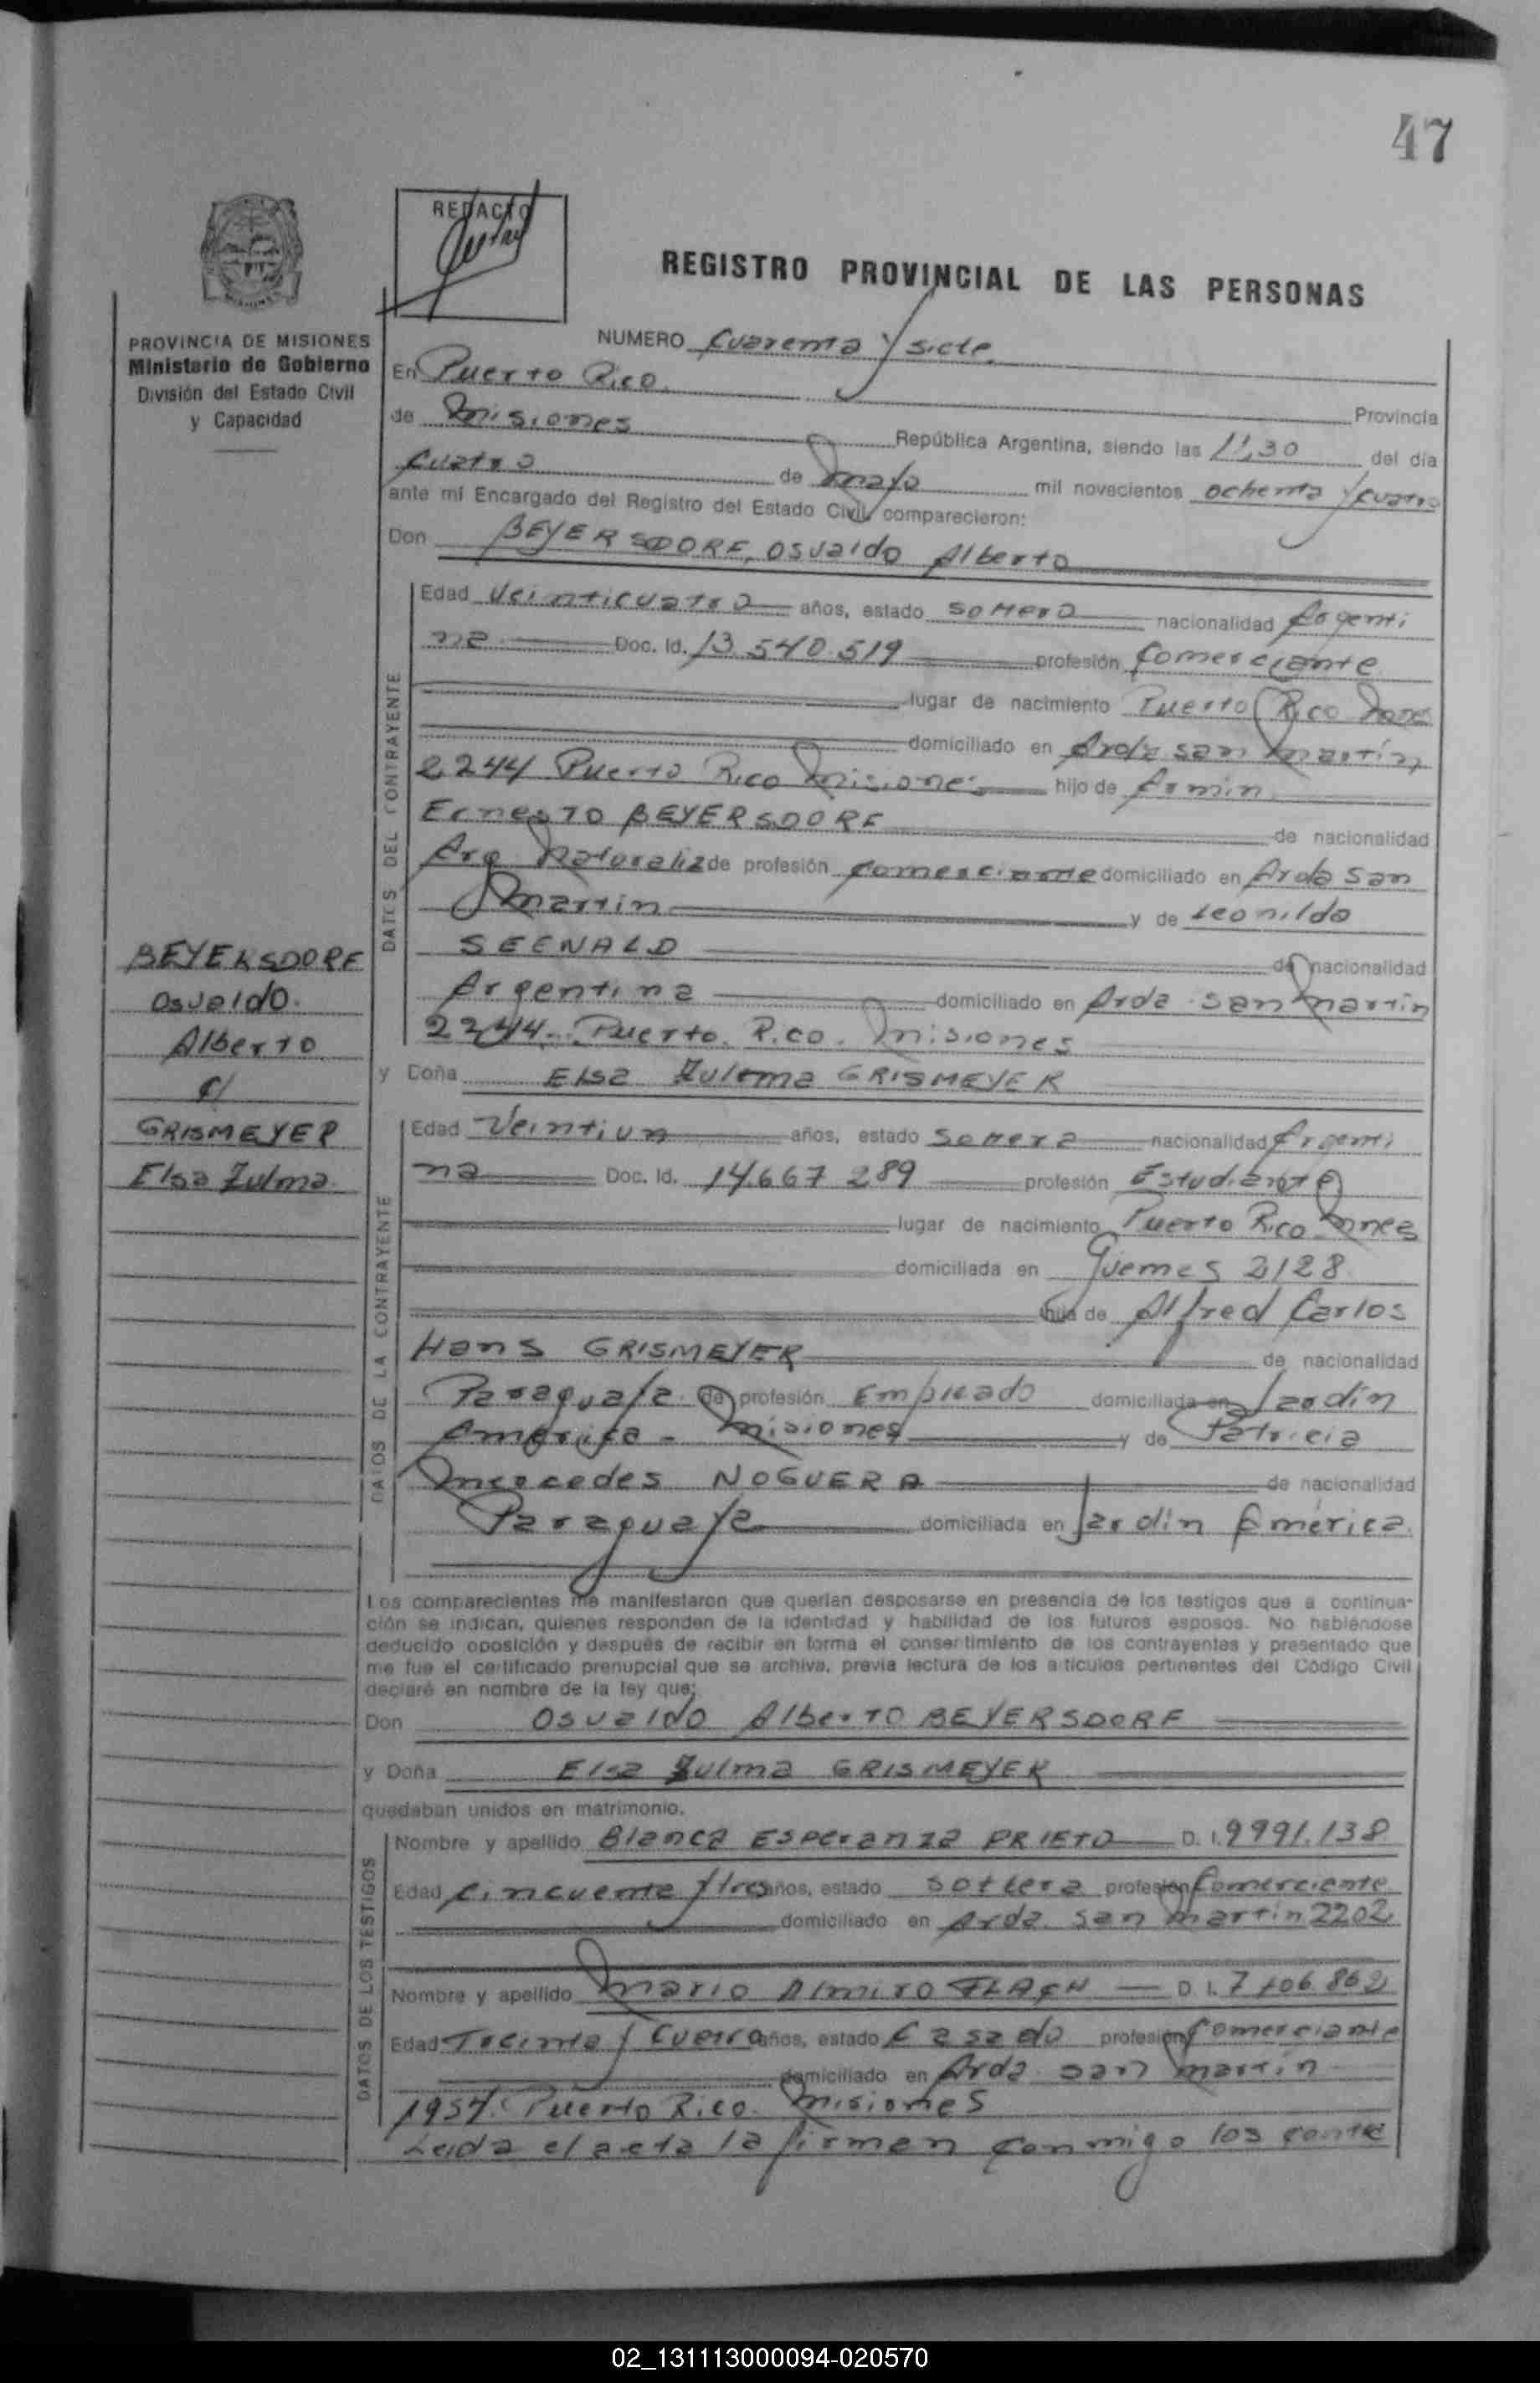 47
REDACTO
REGISTRO PROVINCIAL DE LAS PERSONAS
PROVINCIA DE MISIONES
Ministerio de Gobierno
División del Estado Civil
y Capacidad
NUMERO Cuarenta y siete
En Puerto Rico Provincia
de Misiones República Argentina, siendo las 11,30 del día
cuatro de mayo mil novecientos ochenta y cuatro
ante mí Encargado del Registro del Estado Civil comparecieron:
Don BEYERSDORF, Osvaldo Alberto
DATOS DEL CONTRAYENTE
Edad Veinticuatro años, estado soltero nacionalidad Argenti
na Doc. Id. 13.540.519 profesión Comerciante
lugar de nacimiento Puerto Rico Mnes
domiciliado en Avda san Martín
2244 Puerto Rico Misiones hijo de Armin
Ernesto BEYERSDORF de nacionalidad
Arg. Naturaliz de profesión comerciante domiciliado en Avda San
Martin y de Leonilda
SEEWALD de nacionalidad
Argentina domiciliado en Avda. san Martin
2244. Puerto. Rico. Misiones
y Doña Elsa Zulema GRISMEYER
BEYERSDORF
Osvaldo.
Alberto
c/
GRISMEYER
Elsa Zulma.
DATOS DE LA CONTRAYENTE
Edad Veintiun años, estado soltera nacionalidad Argenti
na Doc. Id. 14.667.289 profesión Estudiante
lugar de nacimiento Puerto Rico Mnes
domiciliada en Guemes 2128
hija de Alfred Carlos
Hans GRISMEYER de nacionalidad
Paraguaya de profesión Empleado domiciliada en Jardín
América - Misiones y de Patricia
Mercedes NOGUERA de nacionalidad
Paraguaya domiciliada en Jardín América.
Los comparecientes me manifestaron que querían desposarse en presencia de los testigos que a continua-
ción se indican, quienes responden de la identidad y habilidad de los futuros esposos. No habiéndose
deducido oposición y después de recibir en forma el consertimiento de los contrayentes y presentado que
me fue el certificado prenupcial que se archiva, previa lectura de los artículos pertinentes del Código Civil
declaré en nombre de la ley que;
Don Osvaldo Alberto BEYERSDORF
y Doña Elsa Zulma GRISMEYER
quedaban unidos en matrimonio.
DATOS DE LOS TESTIGOS
Nombre y apellido Blanca Esperanza PRIETO D. I. 9991.138
Edad Cincuenta y tres años, estado soltera profesión Comerciante
domiciliado en Avda. San Martin 2202
Nombre y apellido Mario Almiro FLACH D. I. 7.706.862
Edad Treinta y Cuatro años, estado Casado profesión Comerciante
domiciliado en Avda. san Martín
1957. Puerto Rico. Misiones
Leida el acta la firman conmigo los contra
02_131113000094-020570